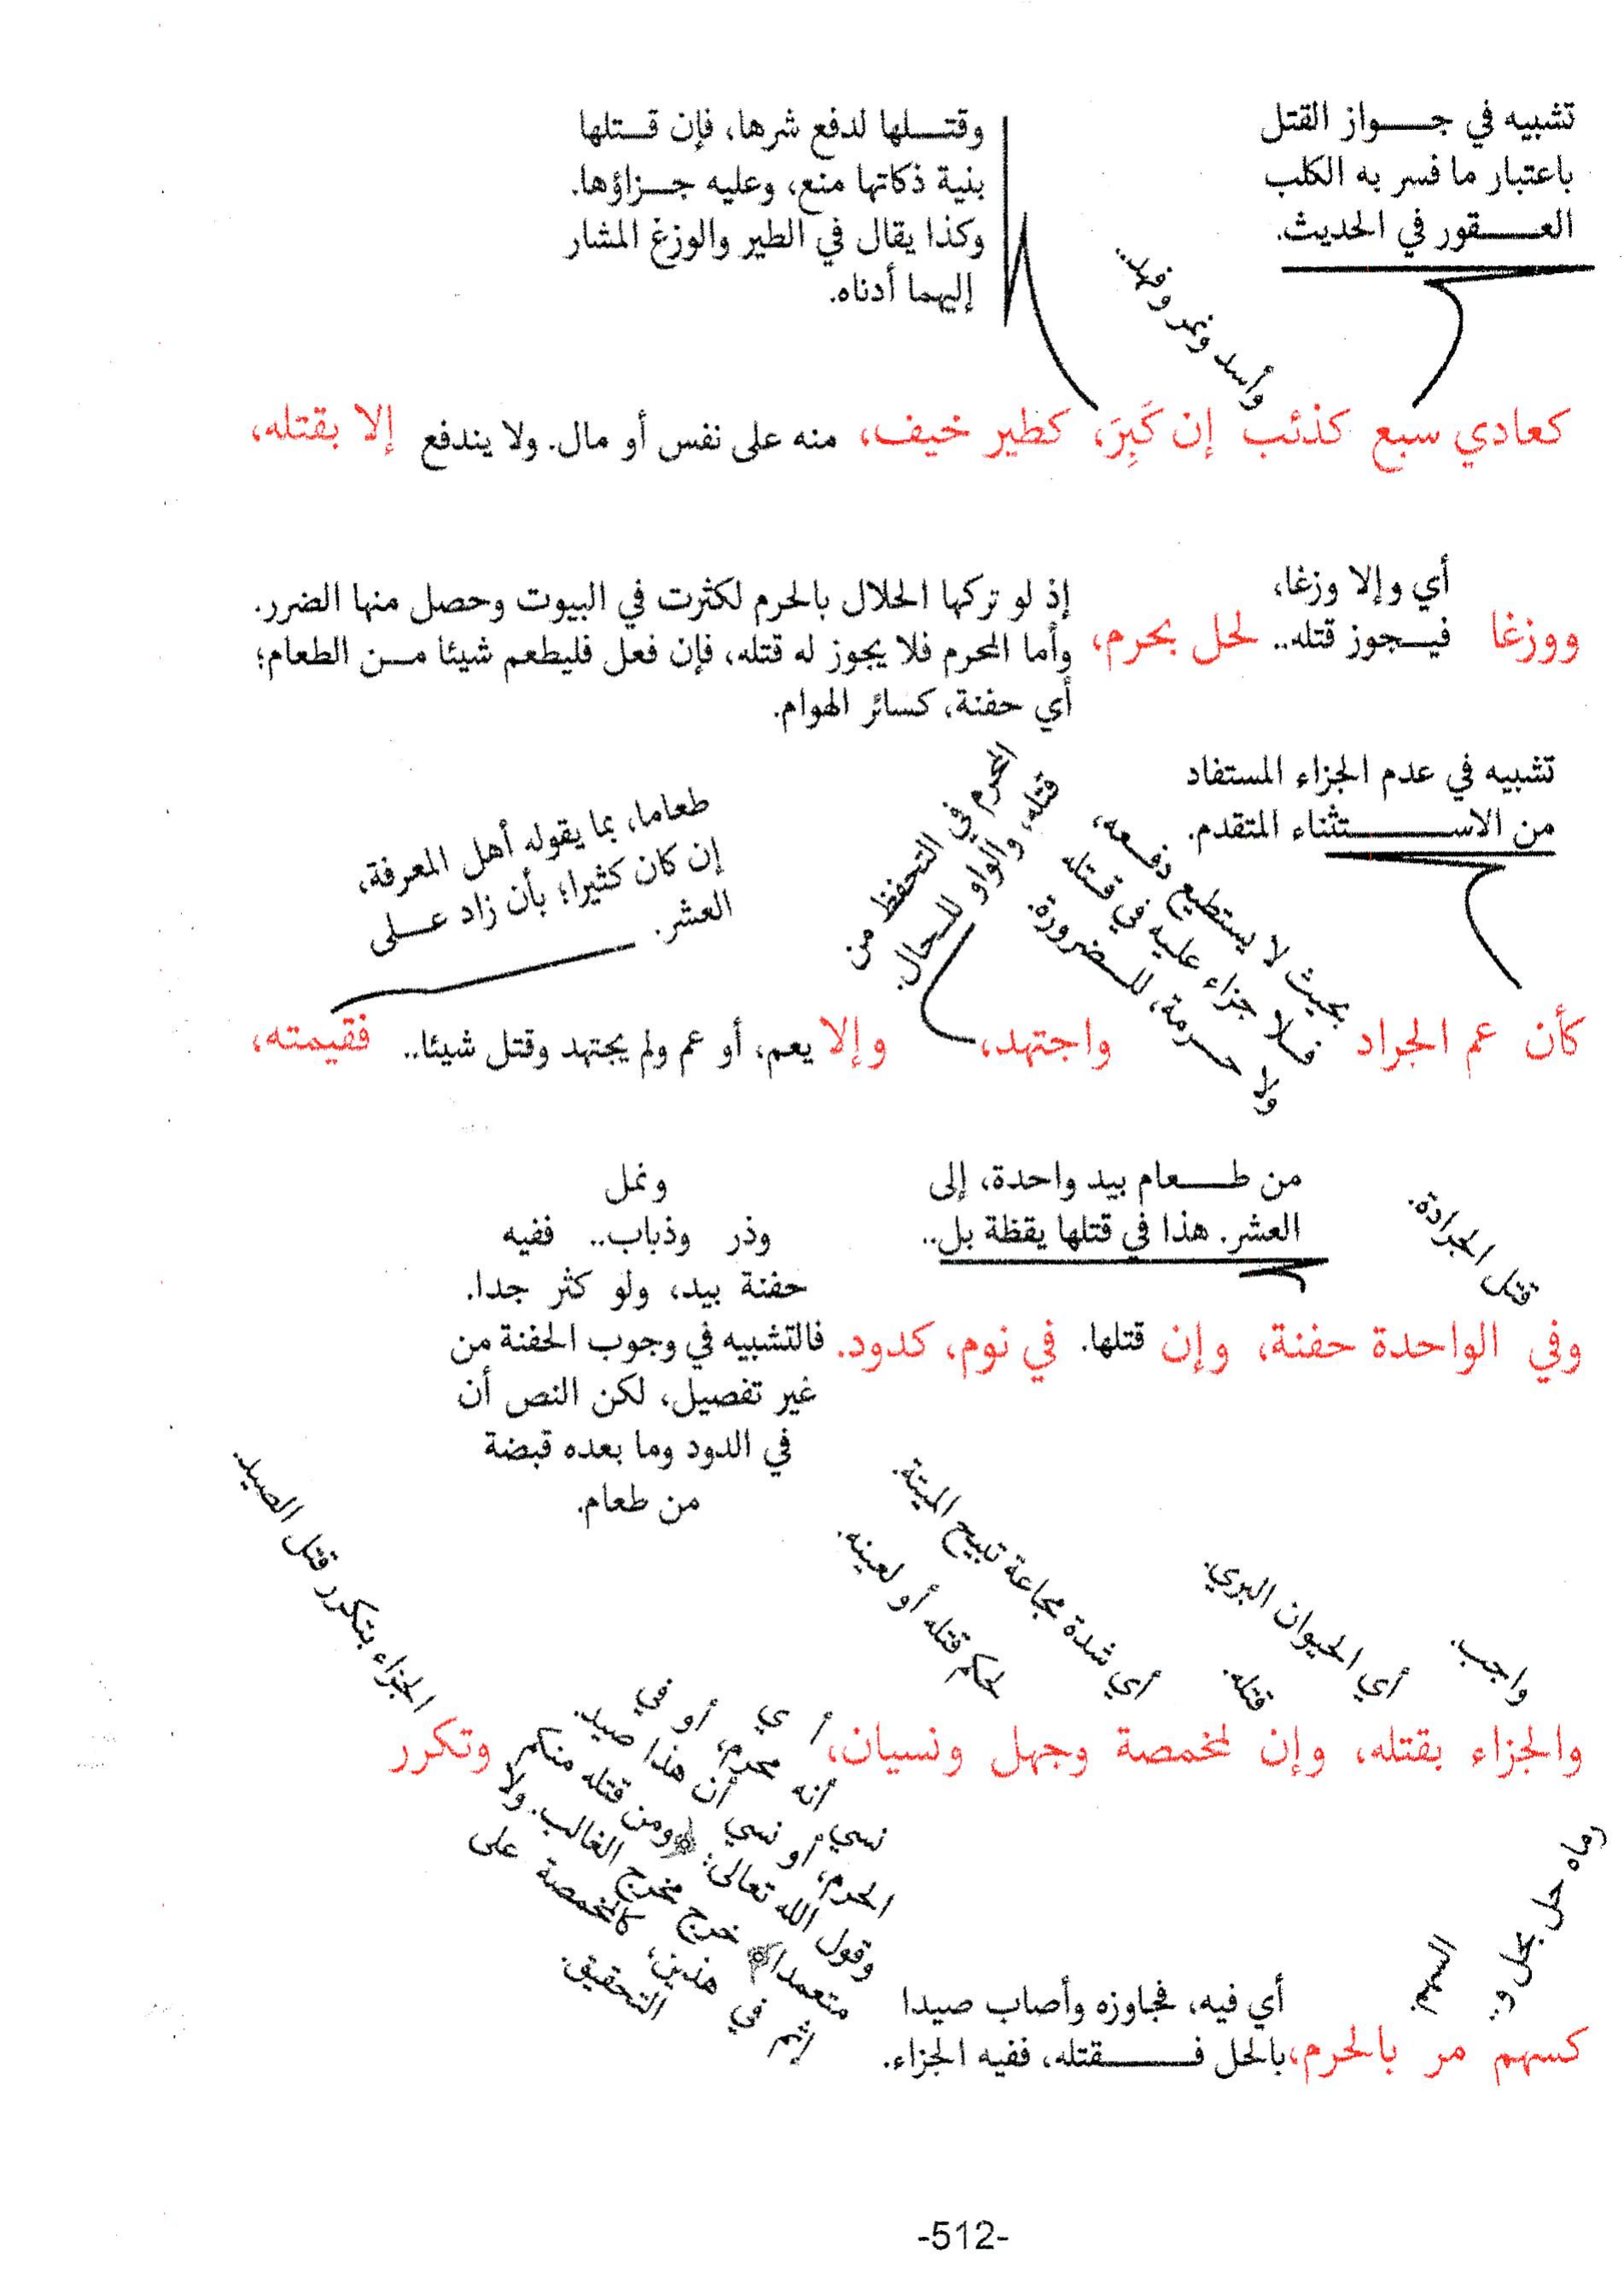 تشبيه في جواز القتل
باعتبار ما فسر به الكلب
العقور في الحديث.
وقتلها لدفع شرها، فإن قتلها
بنية ذكاتها منع، وعليه جزاؤها.
وكذا يقال في الطير والوزغ المشار
إليهما أدناه.
وأسد ونمر وفهد..
كعادي سبع كذئب إن كَبِرَ، كطير خيف، منه على نفس أو مال. ولا يندفع إلا بقتله،
أي وإلا وزغا،
فيجوز قتله..
ووزغا لحل بحرم،
إذ لو تركها الحلال بالحرم لكثرت في البيوت وحصل منها الضرر.
وأما المحرم فلا يجوز له قتله، فإن فعل فليطعم شيئا من الطعام؛
أي حفنة، كسائر الهوام.
تشبيه في عدم الجزاء المستفاد
من الاستثناء المتقدم.
بحيث لا يستطيع دفعه،
فلا جزاء عليه في قتله
ولا حرمة، للضرورة.
المحرم في التحفظ من
قتله، والواو للحال.
طعاما، بما يقوله أهل المعرفة،
إن كان كثيرا؛ بأن زاد على
العشر.
كأن عم الجراد واجتهد، وإلا يعم، أو عم ولم يجتهد وقتل شيئا.. فقيمته،
قتل الجرادة.
من طعام بيد واحدة، إلى
العشر. هذا في قتلها يقظة بل..
وفي الواحدة حفنة، وإن قتلها. في نوم، كدود.
ونمل
وذر وذباب.. ففيه
حفنة بيد، ولو كثر جدا.
فالتشبيه في وجوب الحفنة من
غير تفصيل، لكن النص أن
في الدود وما بعده قبضة
من طعام.
واجب.
أي الحيوان البري.
قتله.
أي شدة مجاعة تبيح الميتة.
لحكم قتله أو لعينه.
والجزاء بقتله، وإن لمخمصة وجهل ونسيان، وتكرر
أي
نسي أنه محرم، أو في
الحرم، أو نسي أن هذا صيد.
وقول الله تعالى: ﴿ومن قتله منكم
متعمدا﴾ خرج مخرج الغالب. ولا
إثم في هذين، كالمخمصة على
التحقيق.
الجزاء بتكرر قتل الصيد.
رماه حل بحل و..
السهم.
كسهم مر بالحرم،
أي فيه، فجاوزه وأصاب صيدا
بالحل فقتله، ففيه الجزاء.
-512-